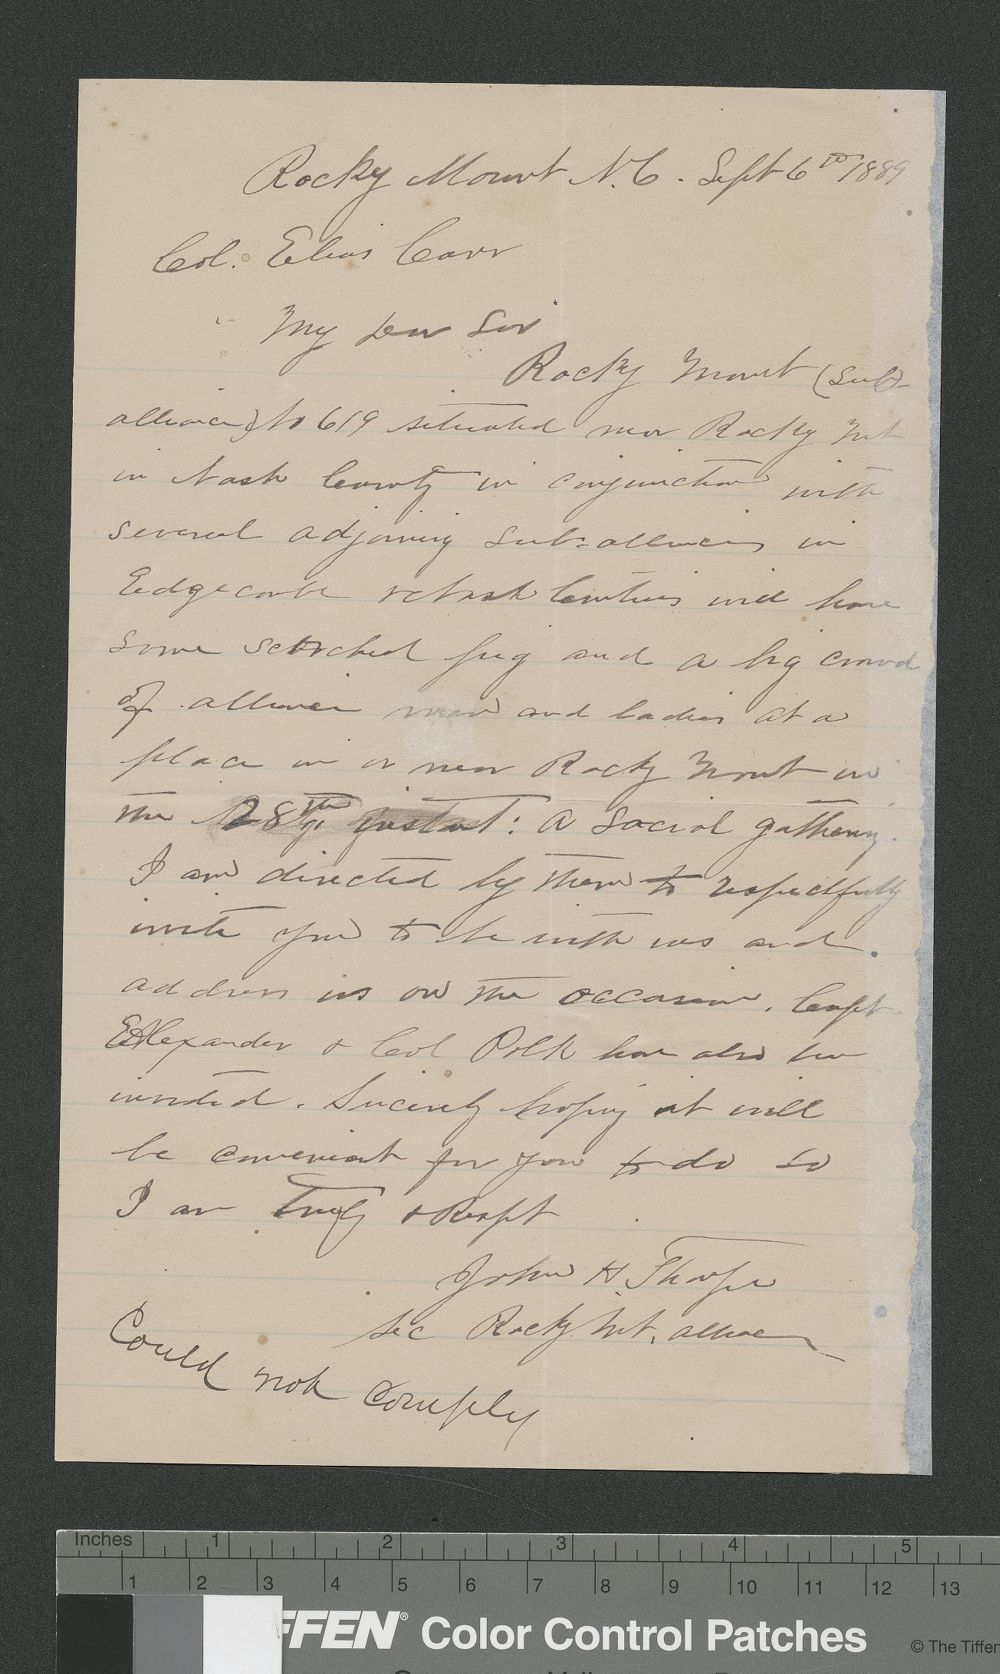 Rocky Mount N.C. Sept 6th 1889
Col. Elias Carr
My Dear Sir
Rocky Mount (Sub-
alliance) No 619 situated near Rocky Mt
in Nash County in conjunction with
several adjoining Sub-alliances in
Edgecombe & Nash Counties will have
some scorched pig and a big crowd
of alliance men and ladies at a
place in or near Rocky Mount on
the 28th instant: A Social gathering.
I am directed by them to respectfully
invite you to be with us and
address us on the occasion. Capt
Alexander & Col Polk have also been
invited. Sincerely hoping it will
be convenient for you to do so
I am Truly & Respt
John H. Thorpe
Sec Rocky Mt. alliance
Could not comply
Inches 1 2 3 4 5
1 2 3 4 5 6 7 8 9 10 11 12 13
FFEN® Color Control Patches
© The Tiffen